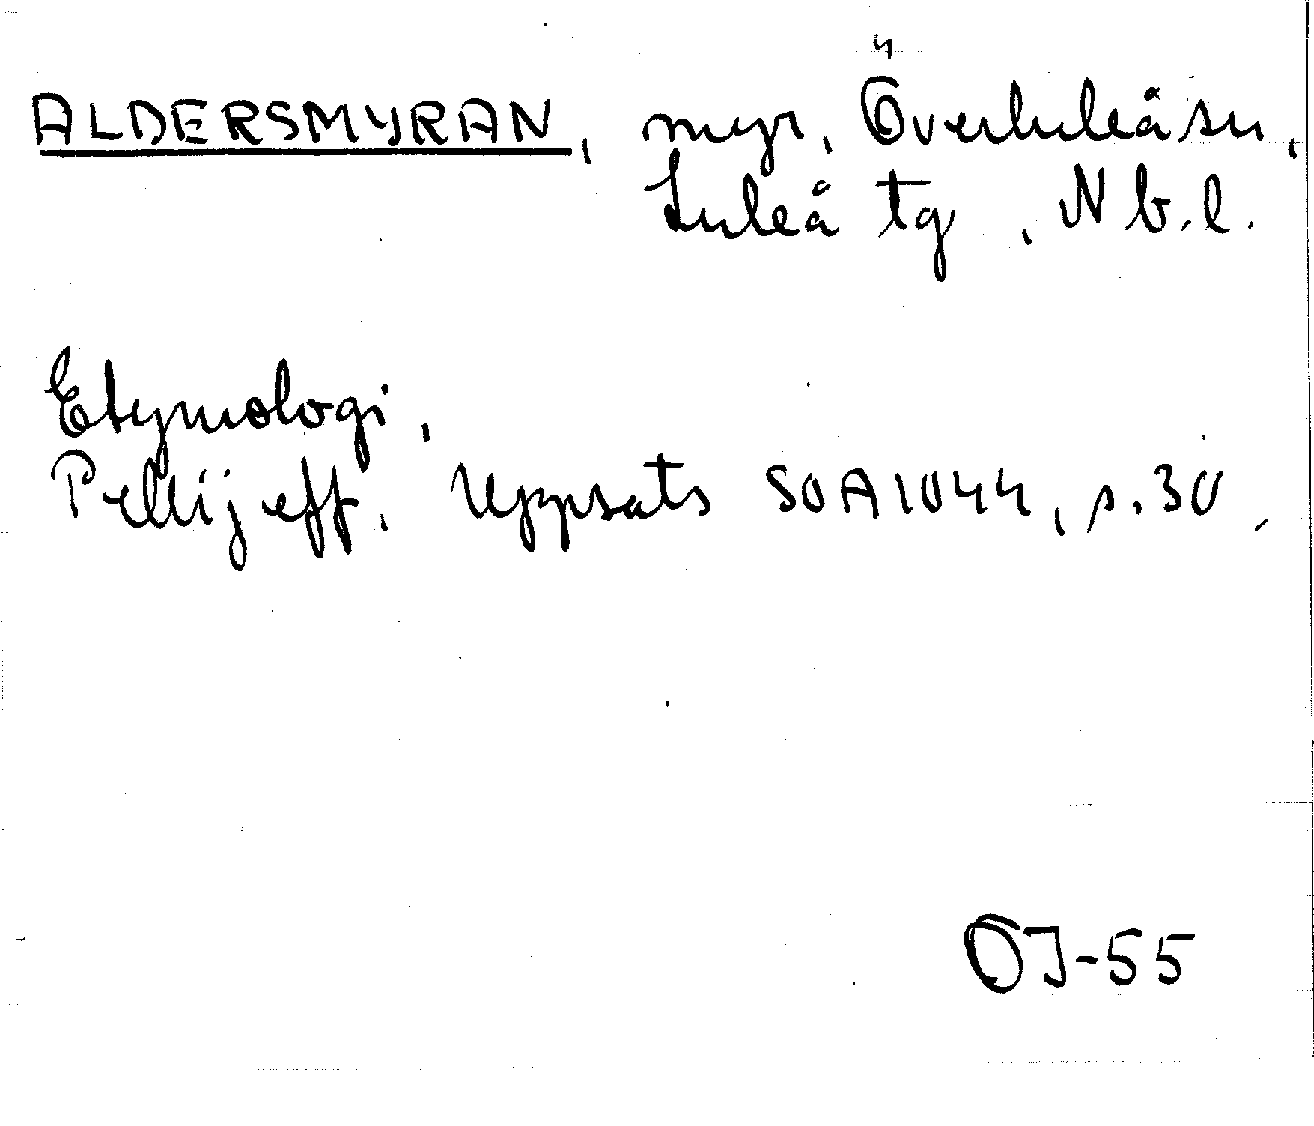 ALDERSMYRAN, myr, Överluleå sn,
Luleå tg, Nb.l.
Etymologi,
Pellijeff, Uppsats SOA1044, s.30.
OJ-55